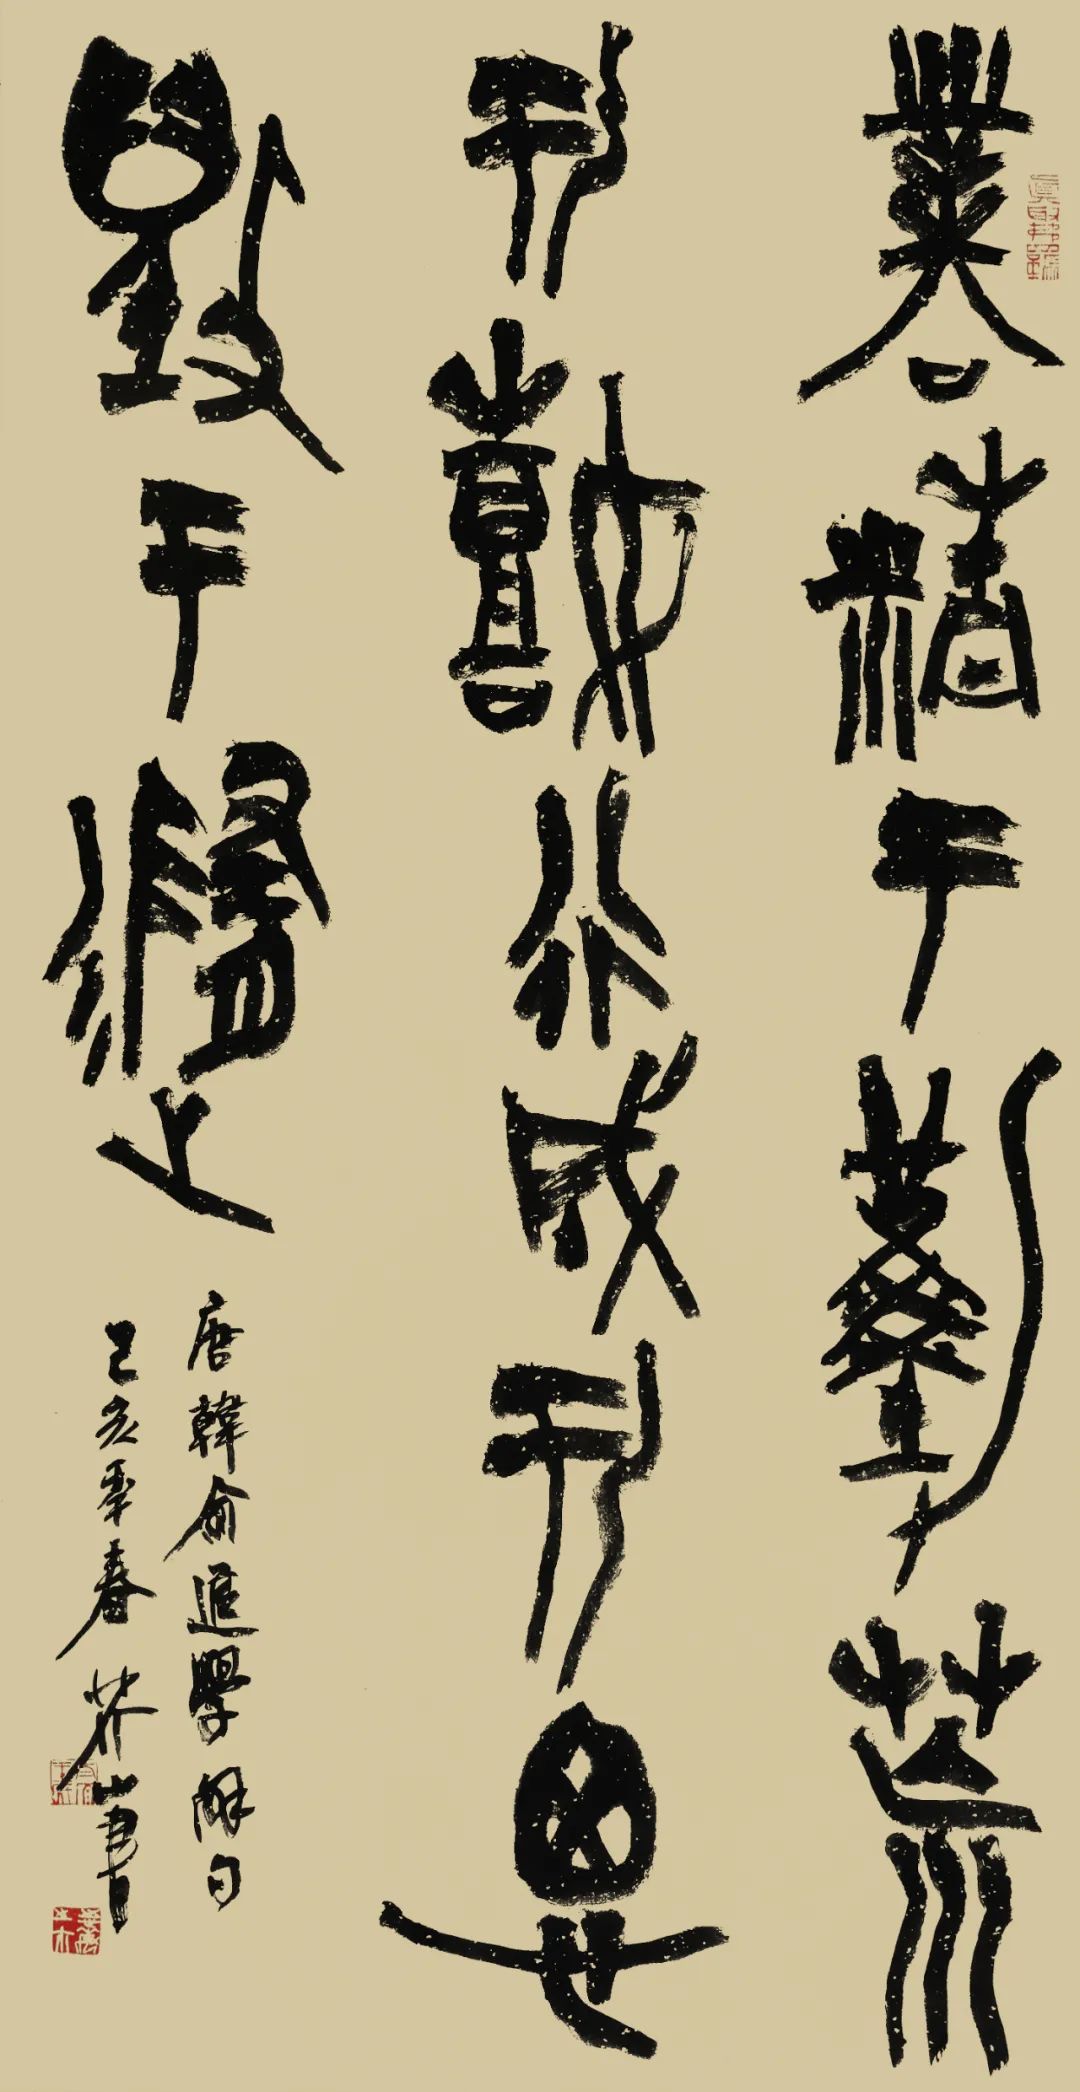 業精于勤荒
于嬉行成于思
毀于隨之
唐韓愈進學解句
己亥年春芥山書